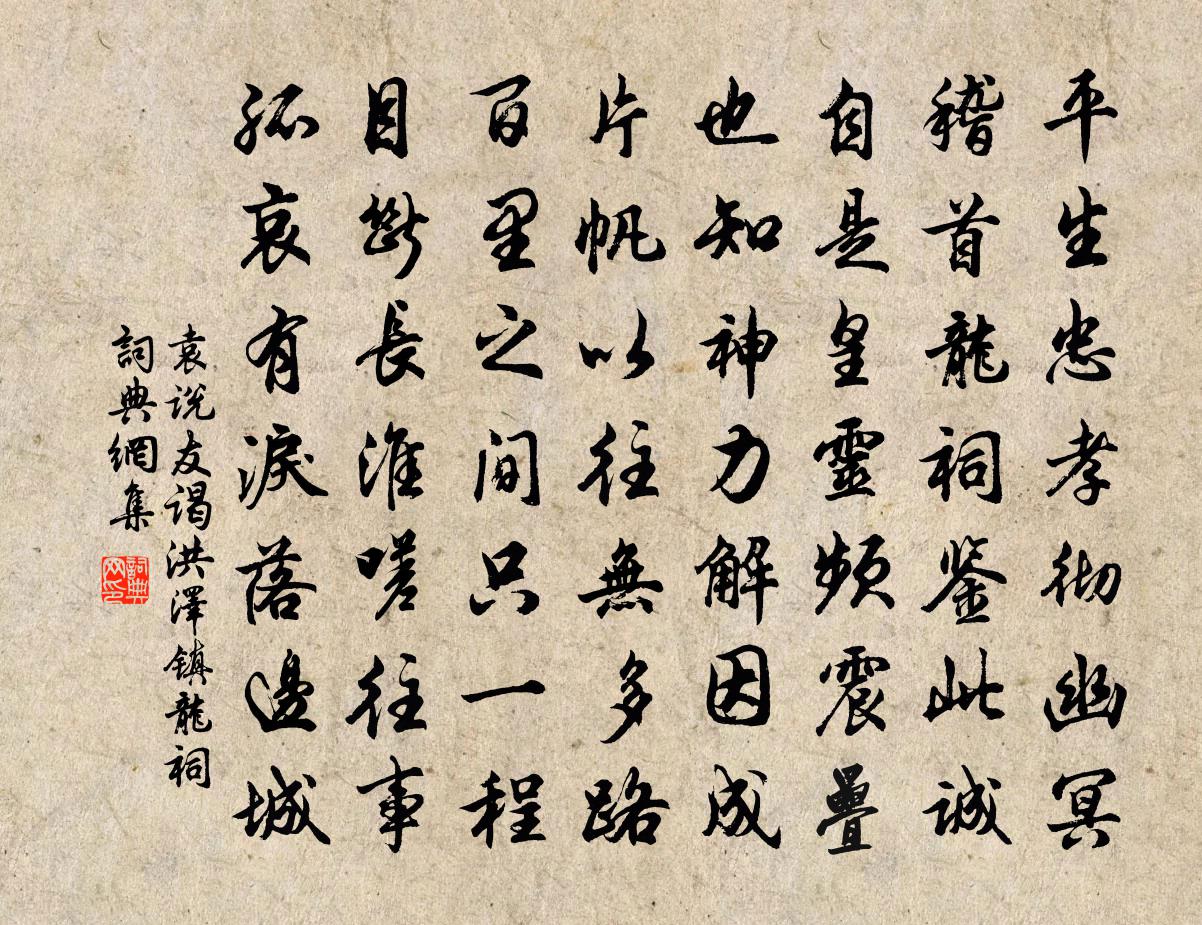 平生忠孝徹幽冥
稽首龍祠鉴此诚
自是皇靈頻震疊
也知神力解因成
片帆以往無多路
百里之间只一程
目断長淮嗟往事
孤哀有淚落邊城
袁说友谒洪澤镇龍祠
詞典網集
詞典网印